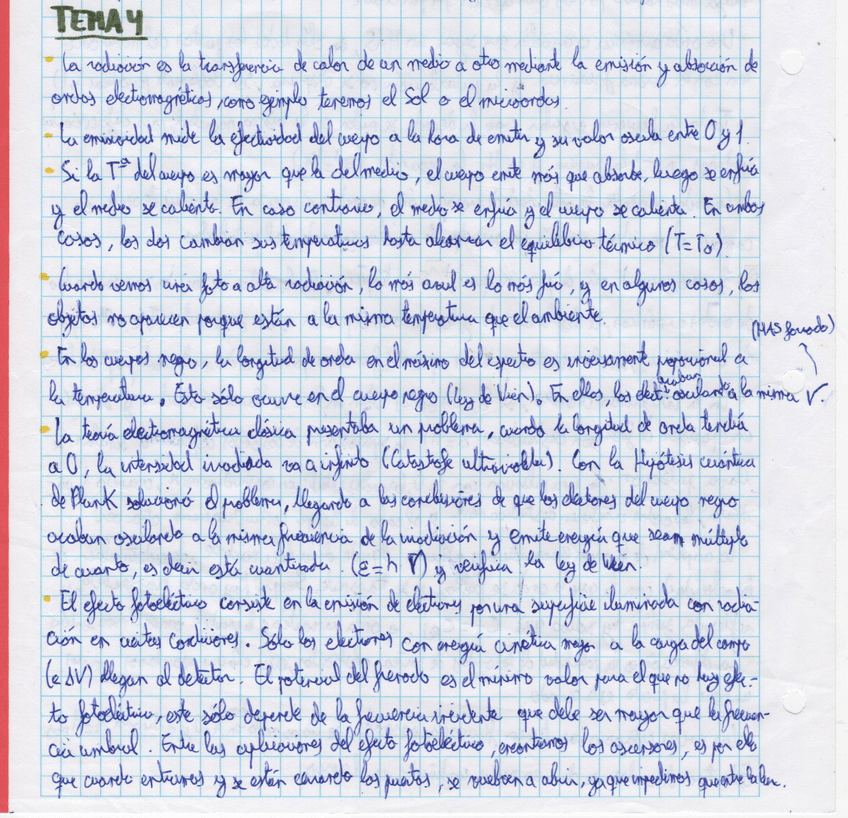 TEMA 4
• La radiación es la transferencia de calor de un medio a otro mediante la emisión y absorción de
ondas electromagnéticas, como ejemplo tenemos el Sol o el microondas.
- La emisividad mide la efectividad del cuerpo a la hora de emitir y su valor oscila entre 0 y 1.
• Si la Tª del cuerpo es mayor que la del medio, el cuerpo emite más que absorbe, luego se enfría
y el medio se calienta. En caso contrario, el medio se enfría y el cuerpo se calienta. En ambos
casos, los dos cambian sus temperaturas hasta alcanzar el equilibrio térmico (T=T₀).
• Cuando vemos una foto a alta radiación, lo más azul es lo más frío, y en algunos casos, los
objetos no aparecen porque están a la misma temperatura que el ambiente.
(MAS forzado)
• En los cuerpos negro, la longitud de onda en el máximo del espectro es inversamente proporcional a
la temperatura. Esto sólo ocurre en el cuerpo negro (ley de Vien). En ellos, los elect. acaban oscilando a la misma ν.
• La teoría electromagnética clásica presentaba un problema, cuando la longitud de onda tendía
a 0, la intensidad irradiada va a infinito (Catástrofe ultravioleta). Con la Hipótesis cuántica
de Plank solucionó el problema, llegando a las conclusiones de que los electores del cuerpo negro
acaban oscilando a la misma frecuencia de la irradiación y emite energía que sean múltiplo
de cuanto, es decir está cuantizada. (ε=h ν) y verifica la ley de Wien.
• El efecto fotoeléctrico consiste en la emisión de electrones por una superficie iluminada con radia-
ción en ciertas condiciones. Sólo los electrones con energía cinética mayor a la carga del campo
(e ΔV) llegan al detector. El potencial del frenado es el mínimo valor para el que no hay efec-
to fotoeléctrico, este sólo depende de la frecuencia incidente que debe ser mayor que la frecuen-
cia umbral. Entre las aplicaciones del efecto fotoeléctrico, encontramos los ascensores, es por ello
que cuando entramos y se están cerrando las puertas, se vuelven a abrir, ya que impedimos que entre la luz.